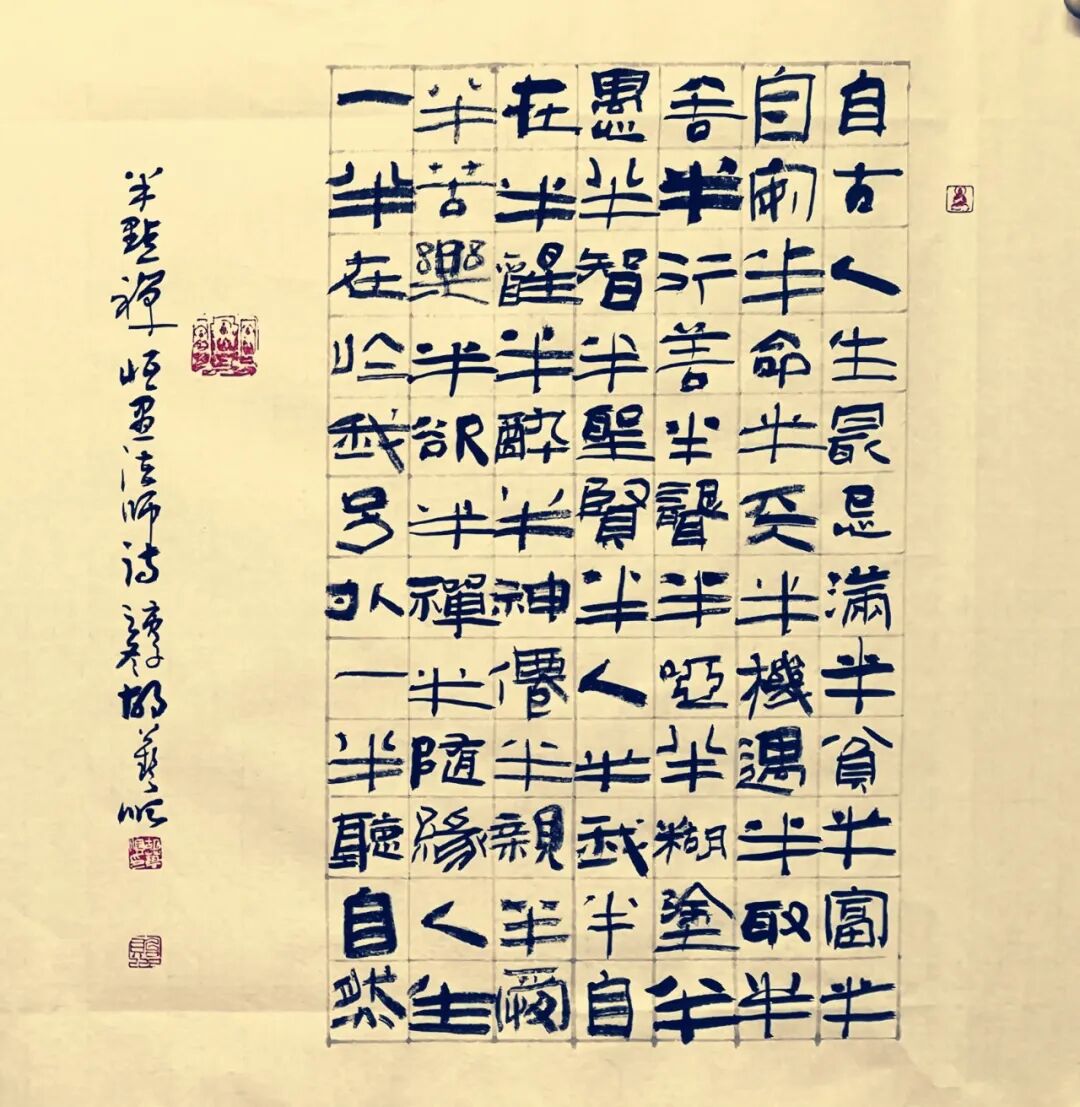 自古人生最忌滿半貧半富半
自安半命半天半機遇半取半
舍半行善半聾半啞半糊塗半
愚半智半聖賢半人半我半自
在半醒半醉半神僊半親半愛
半苦樂半欲半禪半隨緣人生
一半在於我另外一半聽自然
半點禪 法師詩